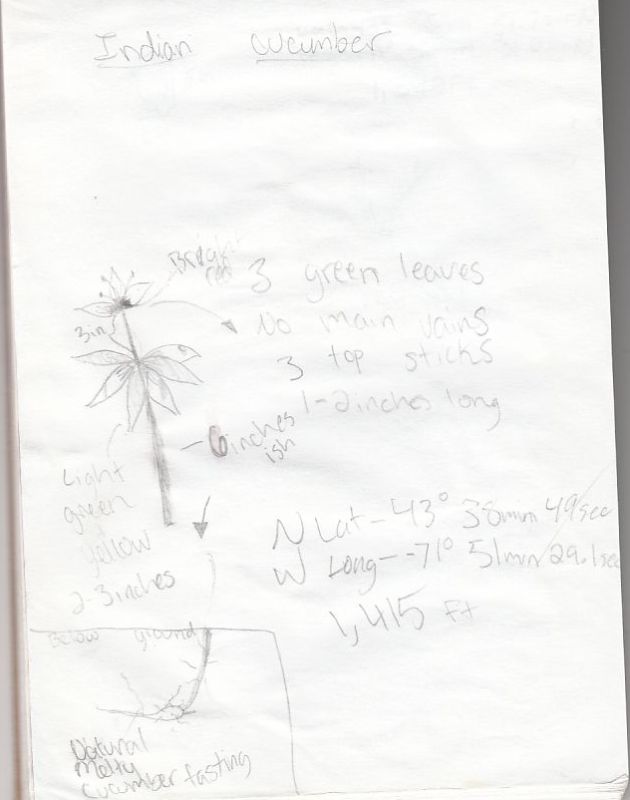 Indian cucumber
Bright
red
3 green leaves
3in
No main vains
3 top sticks
1-2inches long
- 6inches
ish
Light
green
yellow
2-3inches
N Lat - 43° 38min 49sec
W Long - -71° 51min 29.1sec
1,415 ft
Below ground
Natural
Melty
cucumber tasting